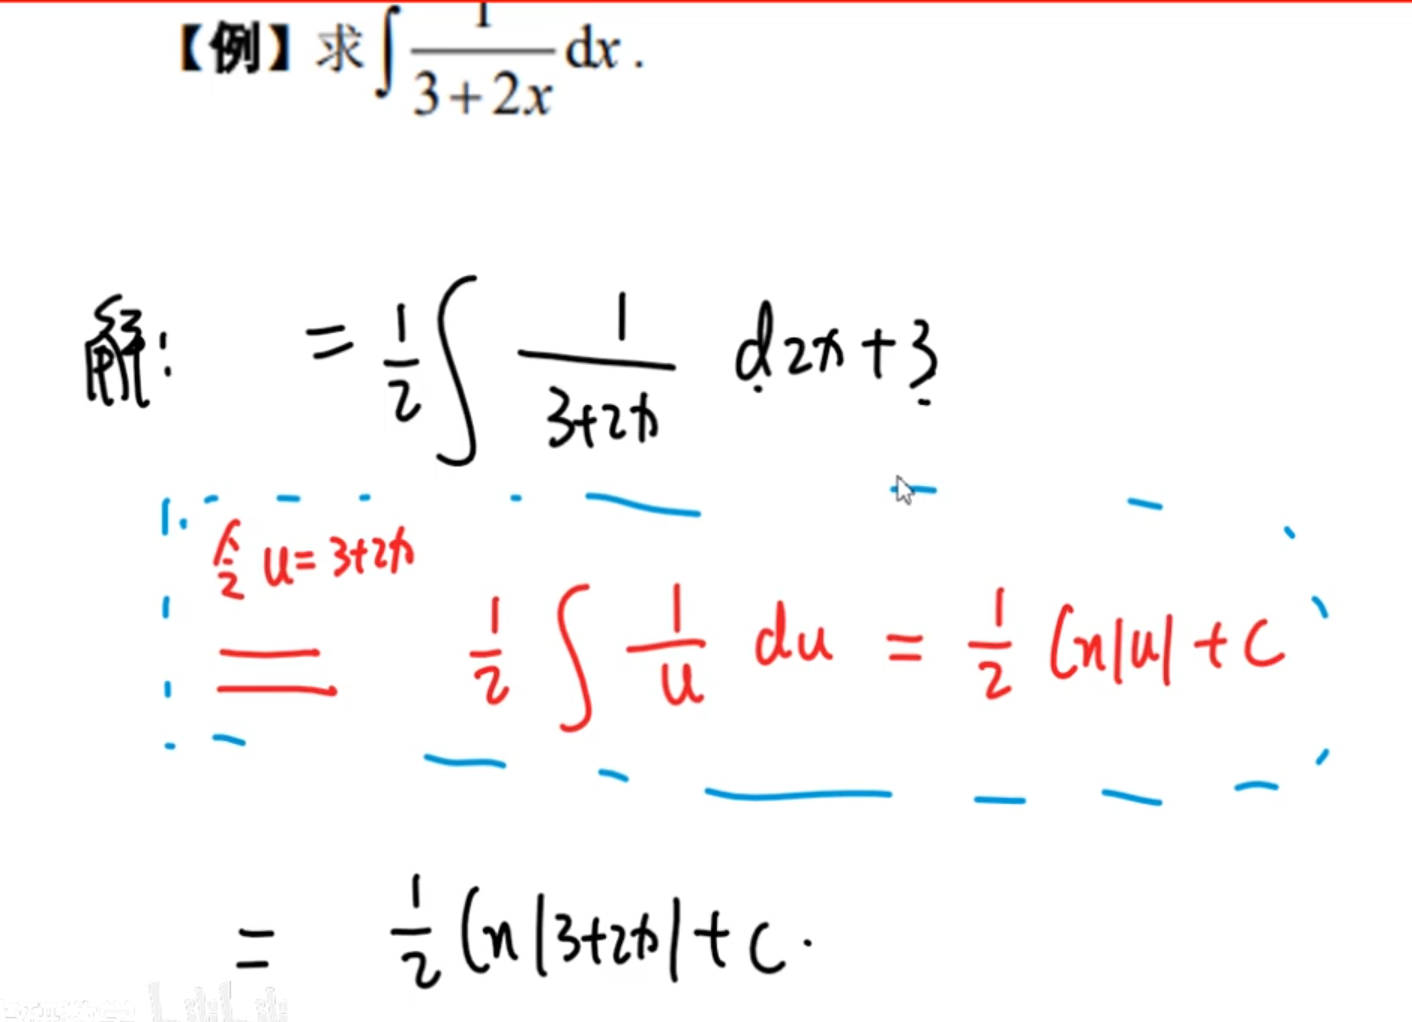 【例】求∫ 1/(3+2x) dx .
解: = 1/2 ∫ 1/(3+2x) d2x+3
令 u=3+2x
= 1/2 ∫ 1/u du = 1/2 ln|u| + C
= 1/2 ln|3+2x| + C.